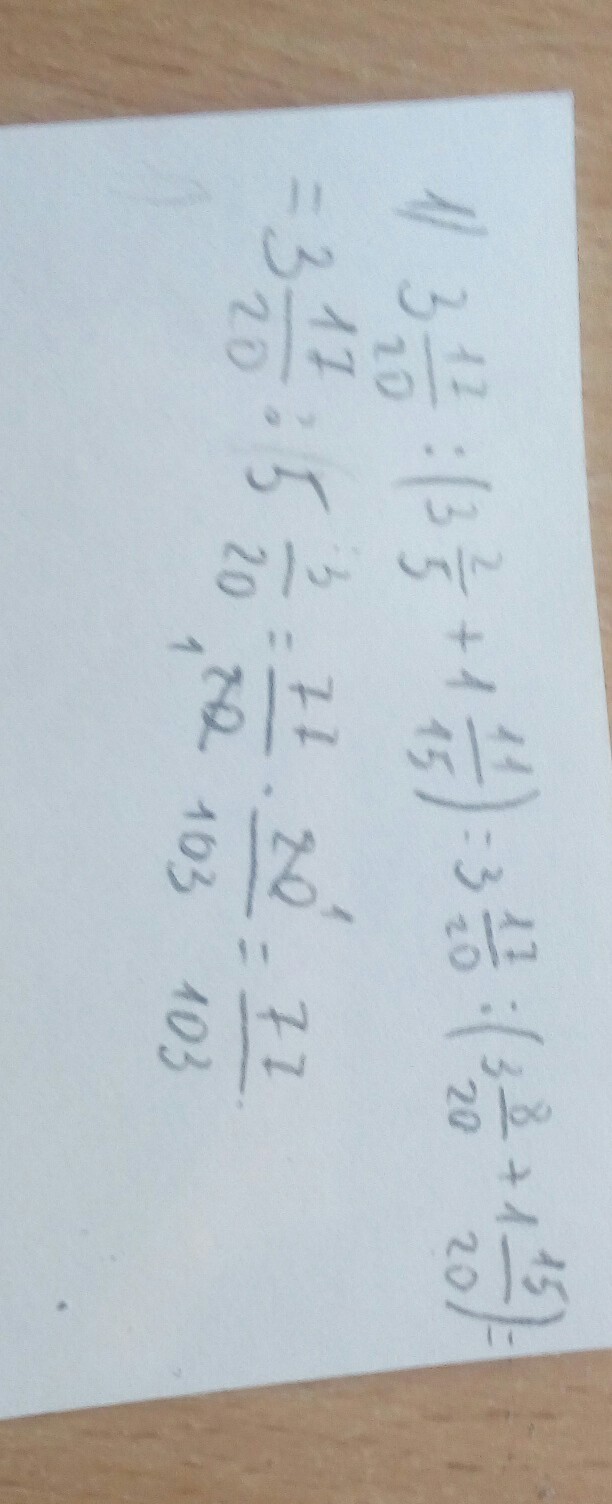 1) 3 17/20 : (3 2/5 + 1 11/15) = 3 17/20 : (3 8/20 + 1 15/20) =
= 3 17/20 : 5 3/20 = 77/20 · 20/103 = 77/103.